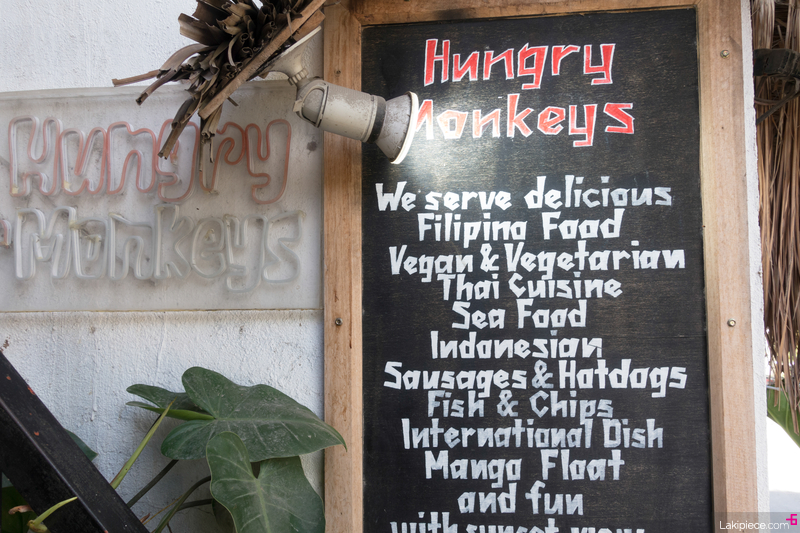 Hungry
Monkeys
Hungry
Monkeys
We serve delicious
Filipino Food
Vegan & Vegetarian
Thai Cuisine
Sea Food
Indonesian
Sausages & Hotdogs
Fish & Chips
International Dish
Mango Float
and fun
with sunset view
Lakipiece.com